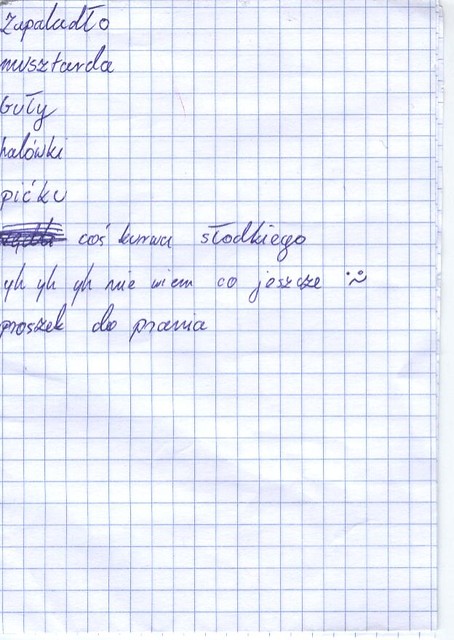 Zapaladło
musztarda
Guły
halówki
pićku
coś kurwa słodkiego
yh yh yh nie wiem co jeszcze :~
proszek do prania